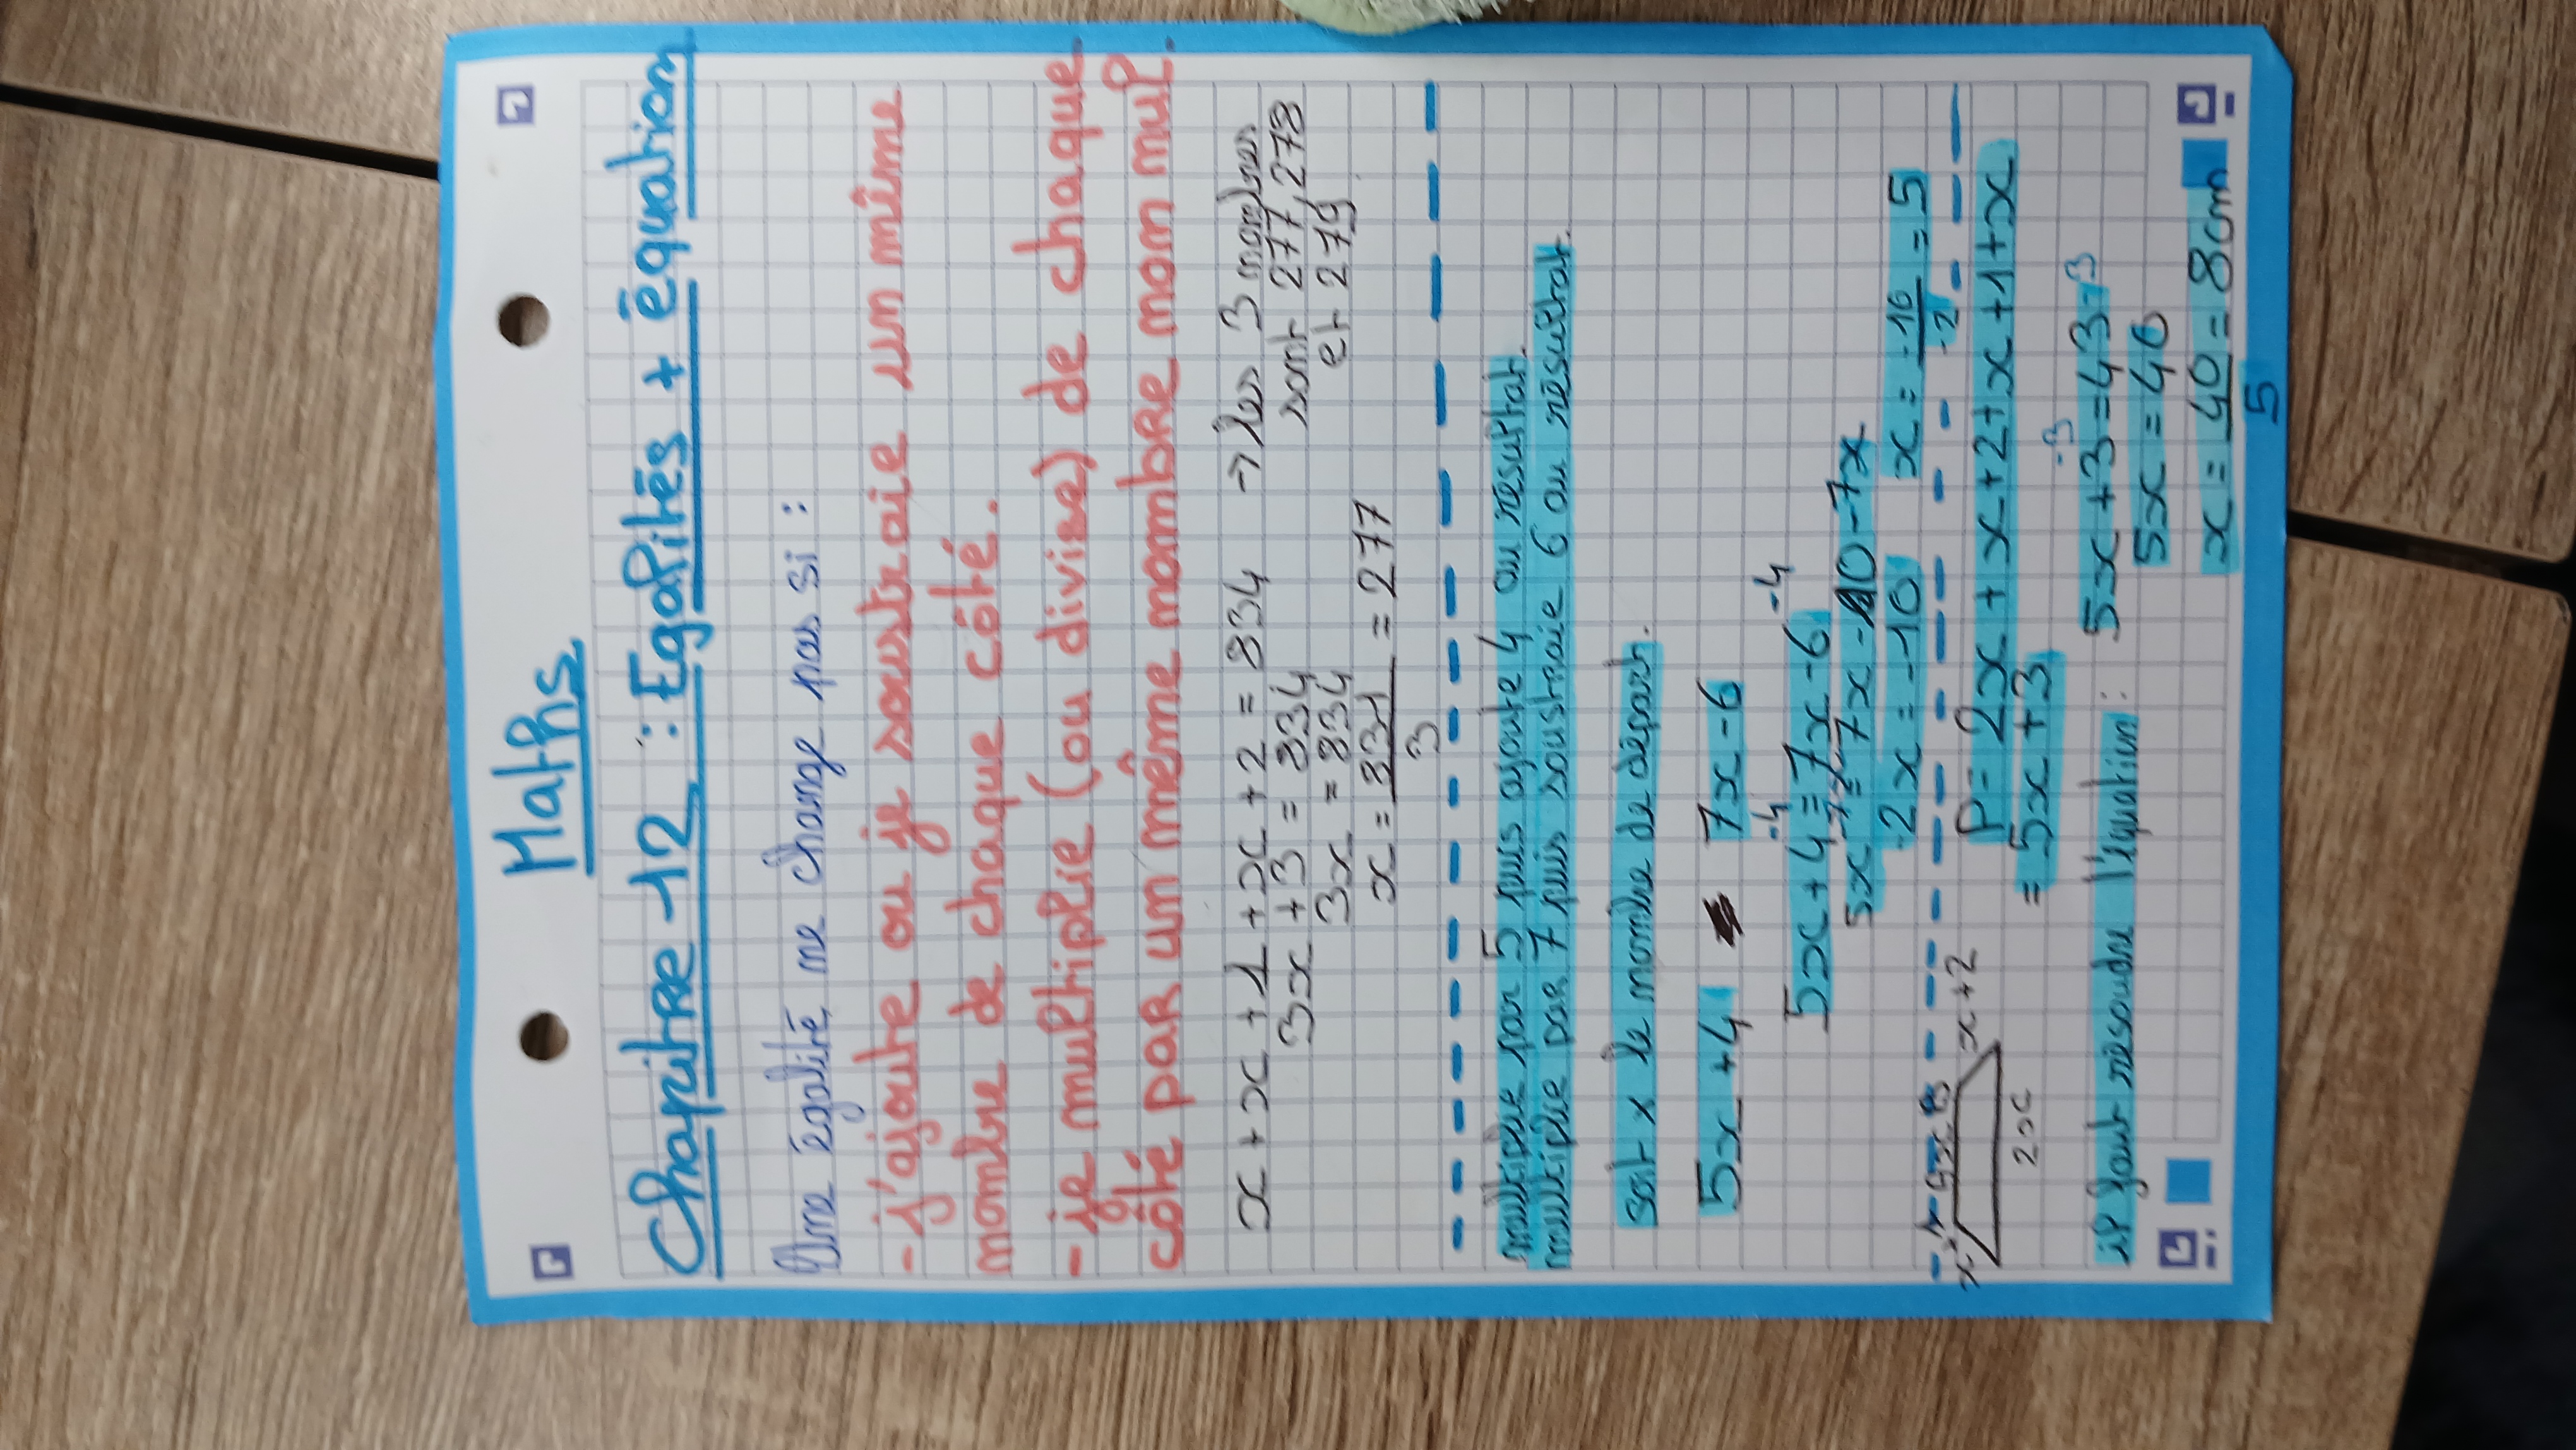 Maths
Chapitre 12 : Egalités + équation
Une égalité ne change pas si :
- j'ajoute ou je soustraie un même
nombre de chaque côté.
- je multiplie (ou divise) de chaque
côté par un même nombre non nul.
x + x + 1 + x + 2 = 834 → les 3 nombres
3x + 3 = 834 sont 277, 278
3x = 834 et 279
x = 831/3 = 277
multiplie par 5 puis ajoute 4 au résultat.
multiplie par 7 puis soustraie 6 au résultat.
soit x le nombre de départ.
5x + 4 7x - 6
-4 -4
5x + 4 = 7x - 6
5x - 7x = 7x - 10 - 7x
-2x = -10 x = -10/-2 = 5
x + 2 P = 2x + x + 2 + x + 1 + x
2x = 5x + 3
-3 -3
il faut résoudre l'équation : 5x + 3 = 43
5x = 40
x = 40/5 = 8cm